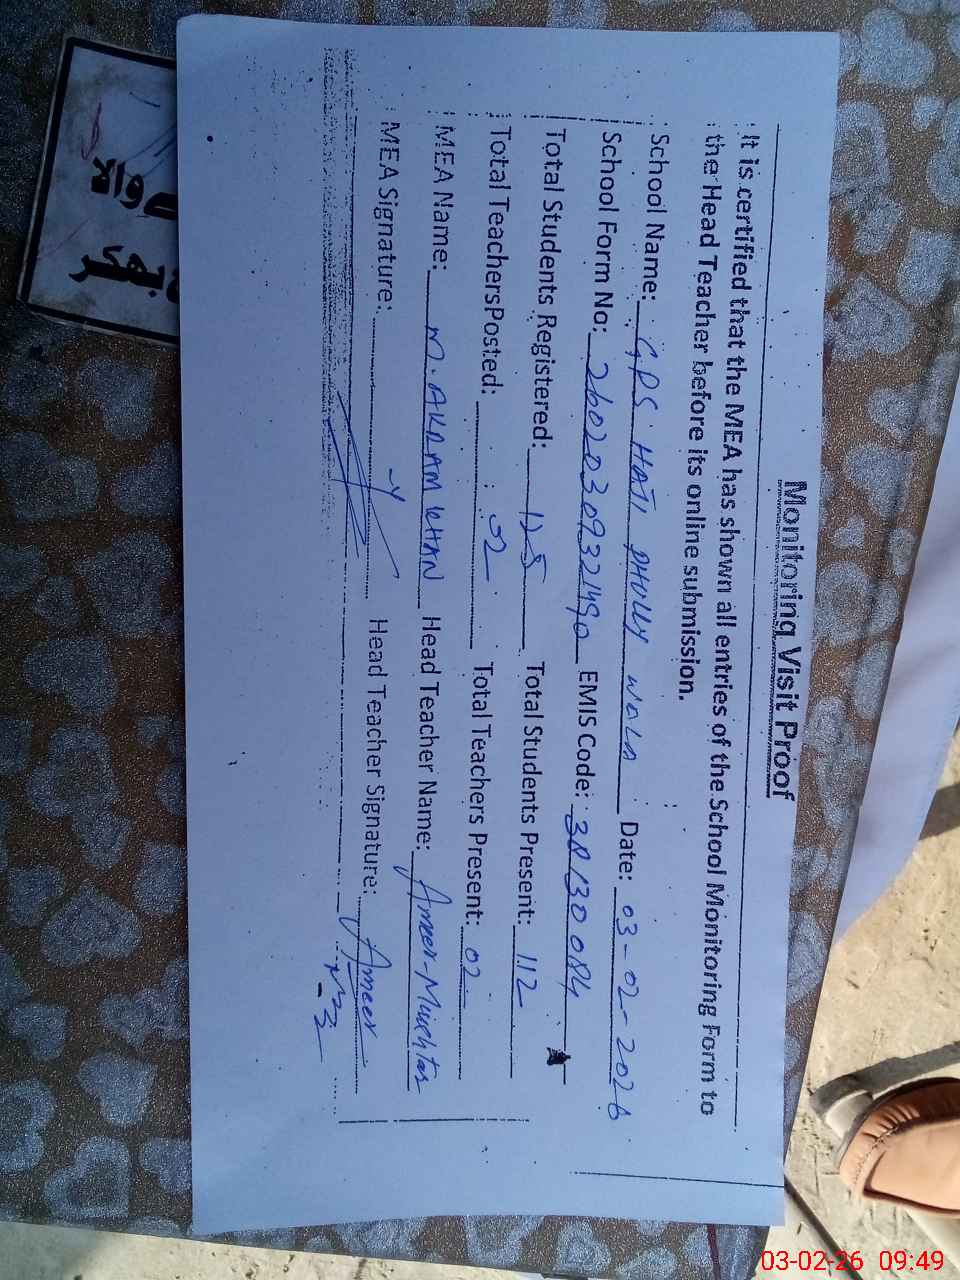 Monitoring Visit Proof
It is certified that the MEA has shown all entries of the School Monitoring Form to
the Head Teacher before its online submission.
School Name: GPS HAJI DHOLLY WALA Date: 03-02-2026
School Form No: 26020309321490 EMIS Code: 38130084
Total Students Registered: 125 Total Students Present: 112
Total TeachersPosted: 02 Total Teachers Present: 02
MEA Name: M. AKRAM KHAN Head Teacher Name: Ameer Mukhtar
MEA Signature: Head Teacher Signature: Ameer
والا
بھکر
03-02-26 09:49